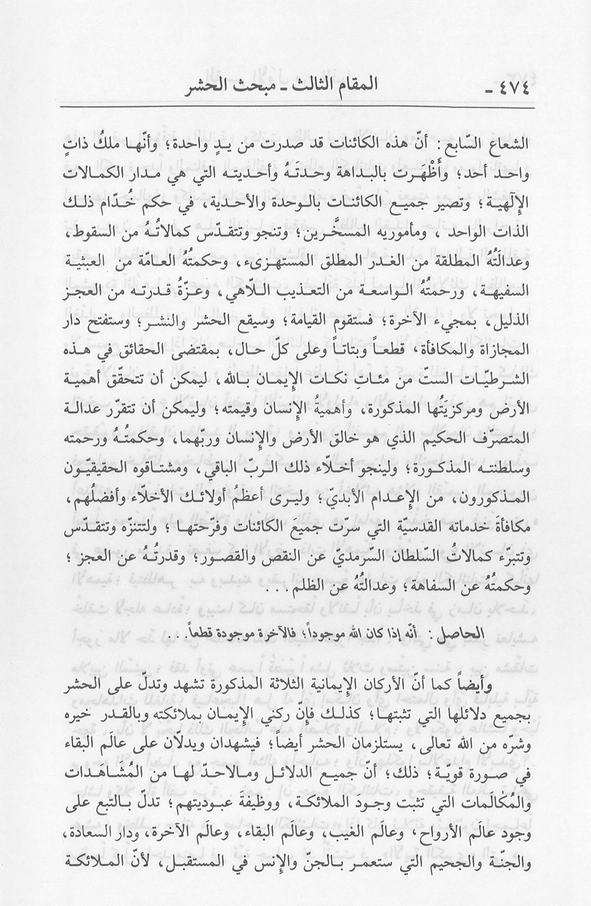 ٤٧٤ - المقام الثالث - مبحث الحشر
الشعاع السّابع: أنّ هذه الكائنات قد صدرت من يدٍ واحدة؛ وأنّها ملكُ ذاتٍ
واحد أحد؛ وأَظْهَرت بالبداهة وحدتَهُ وأحديته التي هي مدار الكمالات
الإلٓهية؛ وتصير جميع الكائنات بالوحدة والأحدية، في حكم خُدّام ذلك
الذات الواحد، ومأموريه المسخَّرين؛ وتنجو وتتقدّس كمالاتُهُ من السقوط،
وعدالتُهُ المطلقة من الغدر المطلق المستهزىء، وحكمتُهُ العامّة من العبثية
السفيهة، ورحمتُهُ الواسعة من التعذيب اللّاهي، وعزّةُ قدرته من العجز
الذليل، بمجيء الآخرة؛ فستقوم القيامة؛ وسيقع الحشر والنشر؛ وستفتح دار
المجازاة والمكافأة، قطعاً وبتاتاً وعلى كلّ حال، بمقتضى الحقائق في هذه
الشرطيّات الستّ من مئاتِ نكات الإيمان بالله، ليمكن أن تتحقّق أهمية
الأرض ومركزيتُها المذكورة، وأهميةُ الإنسان وقيمته؛ وليمكن أن تتقرّر عدالة
المتصرّف الحكيم الذي هو خالق الأرض والإنسان وربّهما، وحكمتُهُ ورحمته
وسلطنته المذكورة؛ ولينجو أخلّاء ذلك الربّ الباقي، ومشتاقوه الحقيقيّون
المذكورون، من الإعدام الأبديّ؛ وليرى أعظمُ أولائك الأخلّاء وأفضلُهم،
مكافأةَ خدماته القدسيّة التي سرّت جميعَ الكائنات وفرّحتها؛ ولتتنزّه وتتقدّس
وتتبرّء كمالاتُ السّلطان السّرمديّ عن النقص والقصور؛ وقدرتُهُ عن العجز؛
وحكمتُهُ عن السفاهة؛ وعدالتُهُ عن الظلم...
الحاصل: أنّه إذا كان الله موجوداً؛ فالآخرة موجودة قطعاً...
وأيضاً كما أنّ الأركان الإيمانية الثلاثة المذكورة تشهد وتدلّ على الحشر
بجميع دلائلها التي تثبتها؛ كذلك فإنّ ركني الإيمان بملائكته وبالقدر خيره
وشرّه من الله تعالى، يستلزمان الحشر أيضاً؛ فيشهدان ويدلّان على عالَم البقاء
في صورة قويّة؛ ذلك؛ أنّ جميع الدلائل ومالاحدّ لها من المُشَاهَدات
والمُكَالَمات التي تثبت وجود الملائكة، ووظيفةَ عبوديتهم؛ تدلّ بالتبع على
وجود عالَم الأرواح، وعالَم الغيب، وعالَم البقاء، وعالَم الآخرة، ودار السعادة،
والجنّة والجحيم التي ستعمر بالجنّ والإنس في المستقبل، لأنّ الملائكة